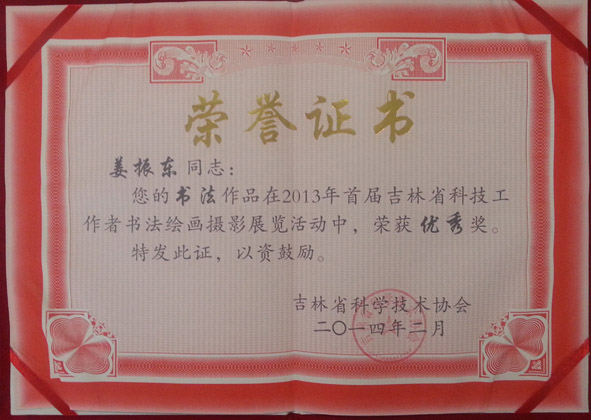 荣誉证书
姜振东同志：
您的书法作品在2013年首届吉林省科技工
作者书法绘画摄影展览活动中，荣获优秀奖。
特发此证，以资鼓励。
吉林省科学技术协会
二〇一四年二月